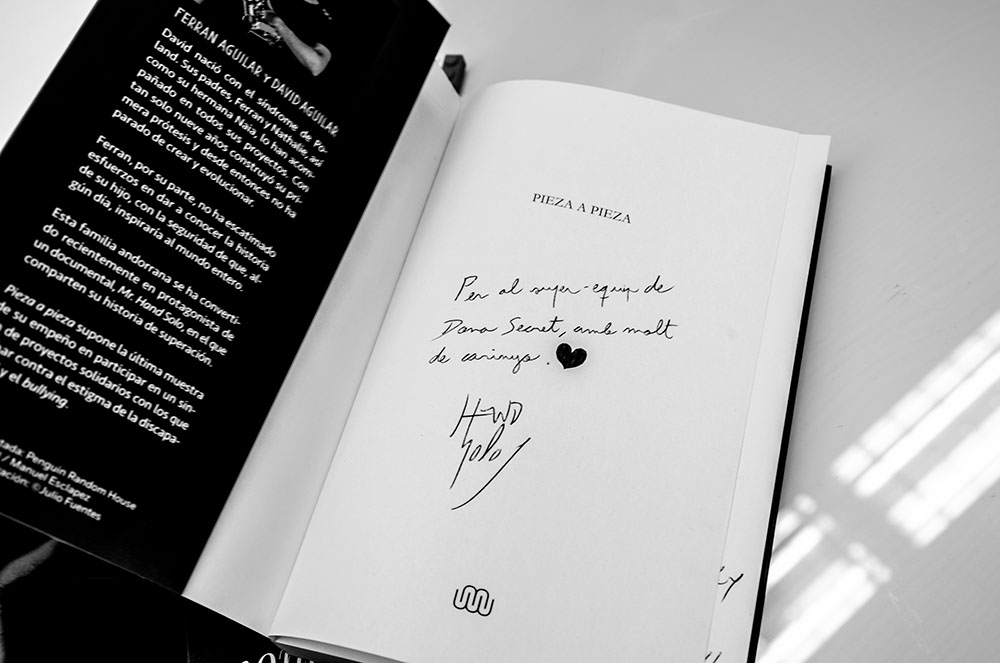 FERRAN AGUILAR Y DAVID AGUILAR
David nació con el síndrome de Po-
land. Sus padres, Ferran y Nathalie, así
como su hermana Naia, lo han acom-
pañado en todos sus proyectos. Con
tan solo nueve años construyó su pri-
mera prótesis y desde entonces no ha
parado de crear y evolucionar.
Ferran, por su parte, no ha escatimado
esfuerzos en dar a conocer la historia
de su hijo, con la seguridad de que, al-
gún día, inspiraría al mundo entero.
Esta familia andorrana se ha converti-
do recientemente en protagonista de
un documental, Mr. Hand Solo, en el que
comparten su historia de superación.
Pieza a pieza supone la última muestra
de su empeño en participar en un sin-
de proyectos solidarios con los que
contra el estigma de la discapa-
y el bullying.
Penguin Random House
/ Manuel Esclapez
©Julio Fuentes
PIEZA A PIEZA
Per al super-equip de
Dona Secret, amb molt
de carinyo.
HAND
Solo